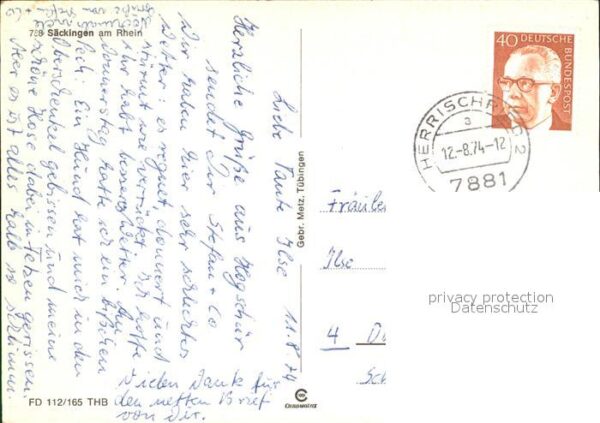 788 Säckingen am Rhein
Liebe Tante Ilse 11.8.74
Herzliche Grüße aus Hogschür
sendet Dir Stefan + Co
Wir haben hier sehr schlechtes
Wetter: es regnet donnert und
stürmt wie verrückt. Ich hoffe
Ihr habt besseres Wetter. Am
Donnerstag hatte ich ein bißchen
Pech. Ein Hund hat mich in den
Oberschenkel gebissen und meine
schöne Hose dabei in Fetzen gerissen.
Aber es ist alles halb so schlimm.
Grüße von Stefan + Co
Vielen Dank für
den netten Brief
von Dir.
FD 112/165 THB
Gebr. Metz, Tübingen
40 DEUTSCHE BUNDESPOST
HERRISCHRIED 2
a
12.-8.74-12
7881
Fräulei
Ilse
4 D
Sch
privacy protection
Datenschutz